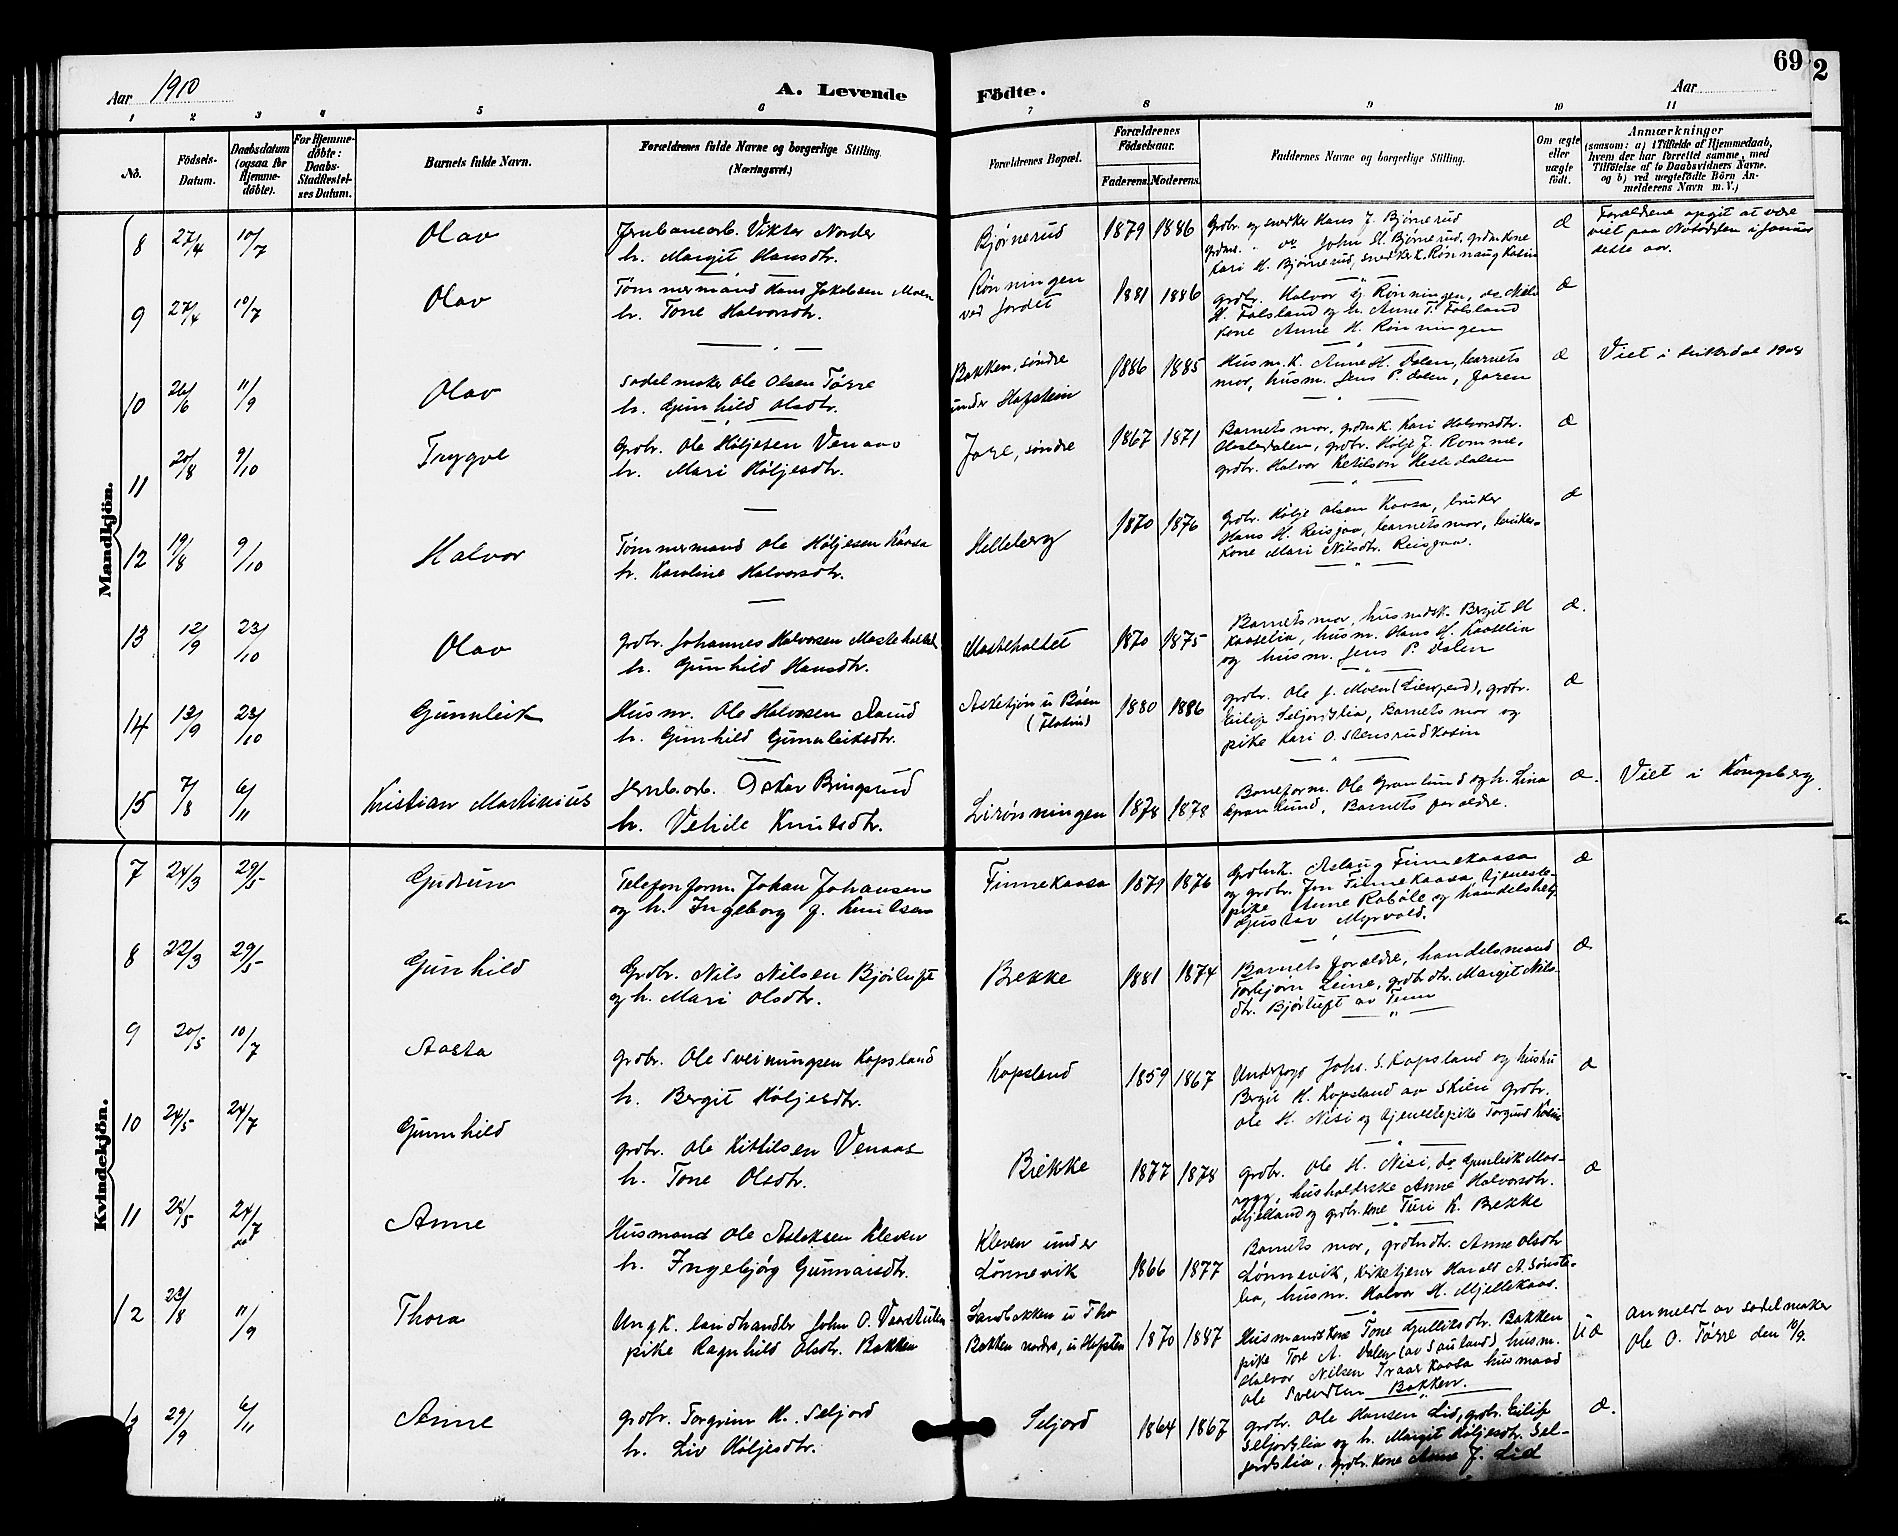 69
2
Aar 1910
A. Levende
Födte.
Aar
1 2 3 4 5 6 7 8 9 10 11
No.
Födsels-
Datum.
Daabsdatum
(ogsaa for
Hjemme-
döbte).
For Hjemme-
döbte:
Daabs-
Stadfæstel-
ses Datum.
Barnets fulde Navn.
Forældrenes fulde Navne og borgerlige Stilling.
(Næringsvei.)
Forældrenes Bopæl.
Forældrenes
Födselsaar.
Faderens. Moderens.
Faddernes Navne og borgerlige Stilling.
Om ægte
eller
uægte
födt.
Anmærkninger
(saasom: a) i Tilfælde af Hjemmedaab,
hvem der har forrettet samme, med
Tilföielse af to Daabsvidners Navne.
og b) ved uægtefödte Börn An-
melderens Navn m. V.)
Mandkjön.
8 27/4 10/7 Olav
Jernbanearb. Viktor Norder
h. Margit Hansdtr.
Bjørnerud 1879 1886
Grdbr. og snekker Hans J. Bjørnerud
John H. Bjørnerud, grdm.kone
Kari H. Bjørnerud, snedker k. Rønnaug Kasin
æ
Forældrene opgit at være
viet paa Notodden i januar
dette aar.
9 27/4 10/7 Olav
Tømmermand Hans Jakobsen Moen
h. Tone Halvorsdtr.
Rønningen
ved Jordet 1881 1886
grdbr. Halvor Rønningen, do Nils
H. Folsland og h. Anne T. Folsland
kone Anne H. Rønningen
æ
10 26/6 11/9 Olav
Sadelmaker Ole Olsen Tørre
h. Gunhild Olsdtr.
Bakken, søndre
under Hafstein 1886 1885
Husm. k. Anne H. Dalen, barnets
mor, husm. Jens P. Dalen, faren
æ
Viet i Hitterdal 1908
11 20/8 9/10 Trygve
Grdbr. Ole Høljesen Venaas
h. Mari Høljesdtr.
Jore, søndre 1867 1871
Barnets mor, grdm.k. Kari Halvorsdtr.
Hesledalen, grdbr. Hølje J. Romme,
grdbr. Halvor Ketilson Hesledalen
æ
12 19/8 9/10 Halvor
Tømmermand Ole Høljesen Kaasa
h. Karoline Halvorsdtr.
Helleberg 1870 1876
Grdbr. Hølje Olsen Kaasa, bruker
Hans H. Reisjaa, barnets mor, bruker-
kone Mari Nilsdtr. Reisjaa.
æ
13 12/9 23/10 Olav
grdbr. Johannes Halvorsen Masteholtet
h. Gunhild Hansdtr.
Masteholtet 1870 1875
Barnets mor, husmdsk. Bergit H
Kaaselia, husm. Hans H. Kaaselia
og husm. Jens P. Dalen
æ.
14 13/9 23/10 Gunnleik
Husm. Ole Halvorsen
h. Gunhild Gunnleiksdtr.
u Bøen
1880 1886
grdbr. Ole J. Moen, grdbr.
Eilif Seljordslia, Barnets mor og
pike Kari O. Stensrud Kasin
æ
15 7/8 6/11 Kristian Martinius
Jernb.arb. Oskar Bringsrud
h. Vehile Knutsdtr.
Lirønningen 1878 1878
Baneform. Ole Granlund og h. Lina
Granlund, Barnets forældre.
æ.
Viet i Kongsberg.
Kvindekjön.
7 24/3 29/5 Gudrun
Telefonform. Johan Johansen
og h. Ingeborg f. Knutsen
Finnekaasa 1879 1876
Grdbrk. Aslaug Finnekaasa
og grdbr. Jon Finnekaasa, tjeneste-
pike Anne Rabøle og handelsbetj
Gustav Myrvold.
æ
8 22/3 29/5 Gunhild
Grdbr. Nils Nilsen Bjørtuft
og h. Mari Olsdtr.
Bekke 1881 1874
Barnets forældre, handelsmand
Torbjørn Leine, grdbrdtr. Margit Nils-
dtr. Bjørtuft av Tinn
æ
9 20/5 10/7 Aasta
grdbr. Ole Sveinungsen Kopsland
h. Bergit Høljesdtr.
Kopsland 1859 1867
Underfogd Johs. S. Kopsland og hustru
Bergit H. Kopsland av Skien grdbr.
Ole H. Nisi og tjenestepike Torgund Kasin
æ
10 24/5 24/7 Gunnhild
grdbr. Ole Kittilsen Venaas
h. Tone Olsdtr.
Bekke 1877 1878
grdbr. Ole H. Nisi, do Gunleik Mos-
rygg, husholderske Anne Halvorsdtr.
Mjelland og grdbr.kone Turi K. Bekke
æ
11 28/5 24/7 Anne
Husmand Ole Aslaksen Kleven
h. Ingebjørg Gunnarsdtr.
Kleven under
Lønnevik 1866 1877
Barnets mor, grdbrdtr. Anne Olsdtr
Lønnevik, kirketjener Harald A. Sønste-
lia, husm. Halvor H. Mjellekaas.
12 23/8 11/9 Thora
Ungk. landhandler John O. Vaardtulen
pike Ragnhild Olsdtr. Bakken
Sandbakken u Tho
Bakken nordre, u Hafsten 1870 1887
Husmandskone Tone Gulliksdtr. Bakken
pike Tore A. Dalen (av Sauland) husm.
Halvor Nilsen Traar Kaasa husmand
Ole Svendsen Bakken.
uæ
Anmeldt av sadelmaker
Ole O. Tørre den 10/9.
29/9 6/11 Anne
grdbr. Torgrim H. Seljord
h. Liv Høljesdtr.
Seljord 1864 1867
grdbr. Ole Hansen Lid, grdbr. Eilif
Seljordslia og h. Margit Høljesdtr. Sel-
jordslia, grdbr. kone Anne J. Lid
æ.